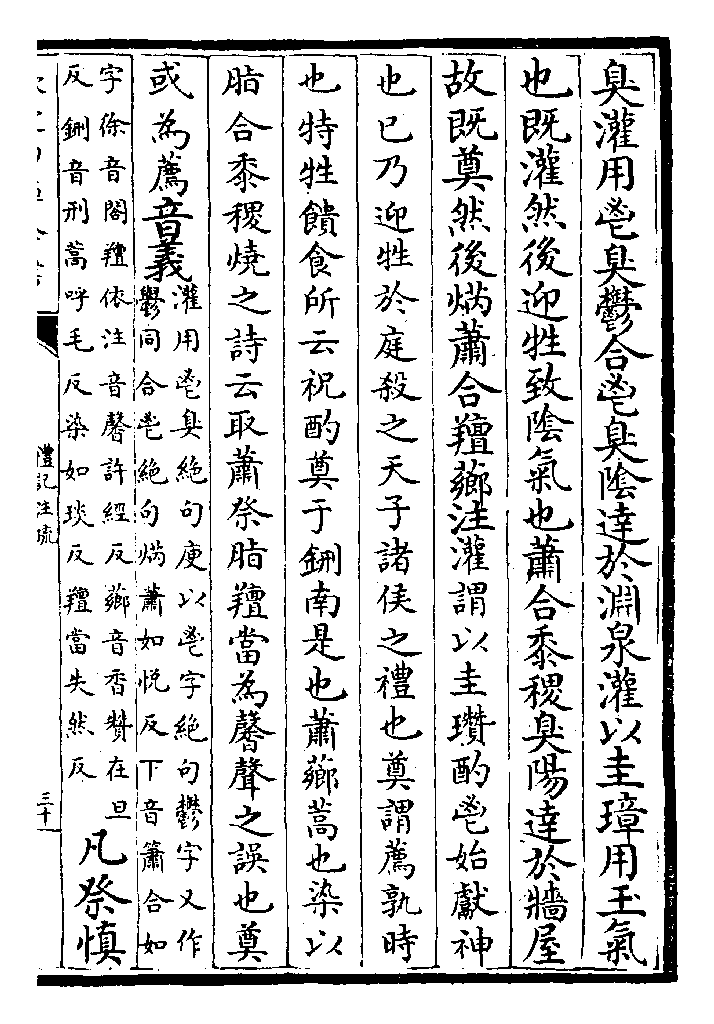 臭灌用鬯臭鬱合鬯臭隂達於淵泉灌以圭璋用玉氣
也既灌然後迎牲致隂氣也蕭合黍稷臭陽達於牆屋
故既奠然後焫蕭合羶薌注灌謂以圭瓚酌鬯始獻神
也已乃迎牲於庭殺之天子諸侯之禮也奠謂薦孰時
也特牲饋食所云祝酌奠于鉶南是也蕭薌蒿也染以
脂合黍稷燒之詩云取蕭祭脂羶當為馨聲之誤也奠
或為薦音義灌用鬯臭絶句庾以鬯字絶句鬱字又作
鬰同合鬯絶句焫蕭如悦反下音簫合如
字徐音閤羶依注音馨許經反薌音香瓚在旦
反鉶音刑蒿呼毛反染如琰反羶當失然反
凡祭慎
禮記注疏
三十一